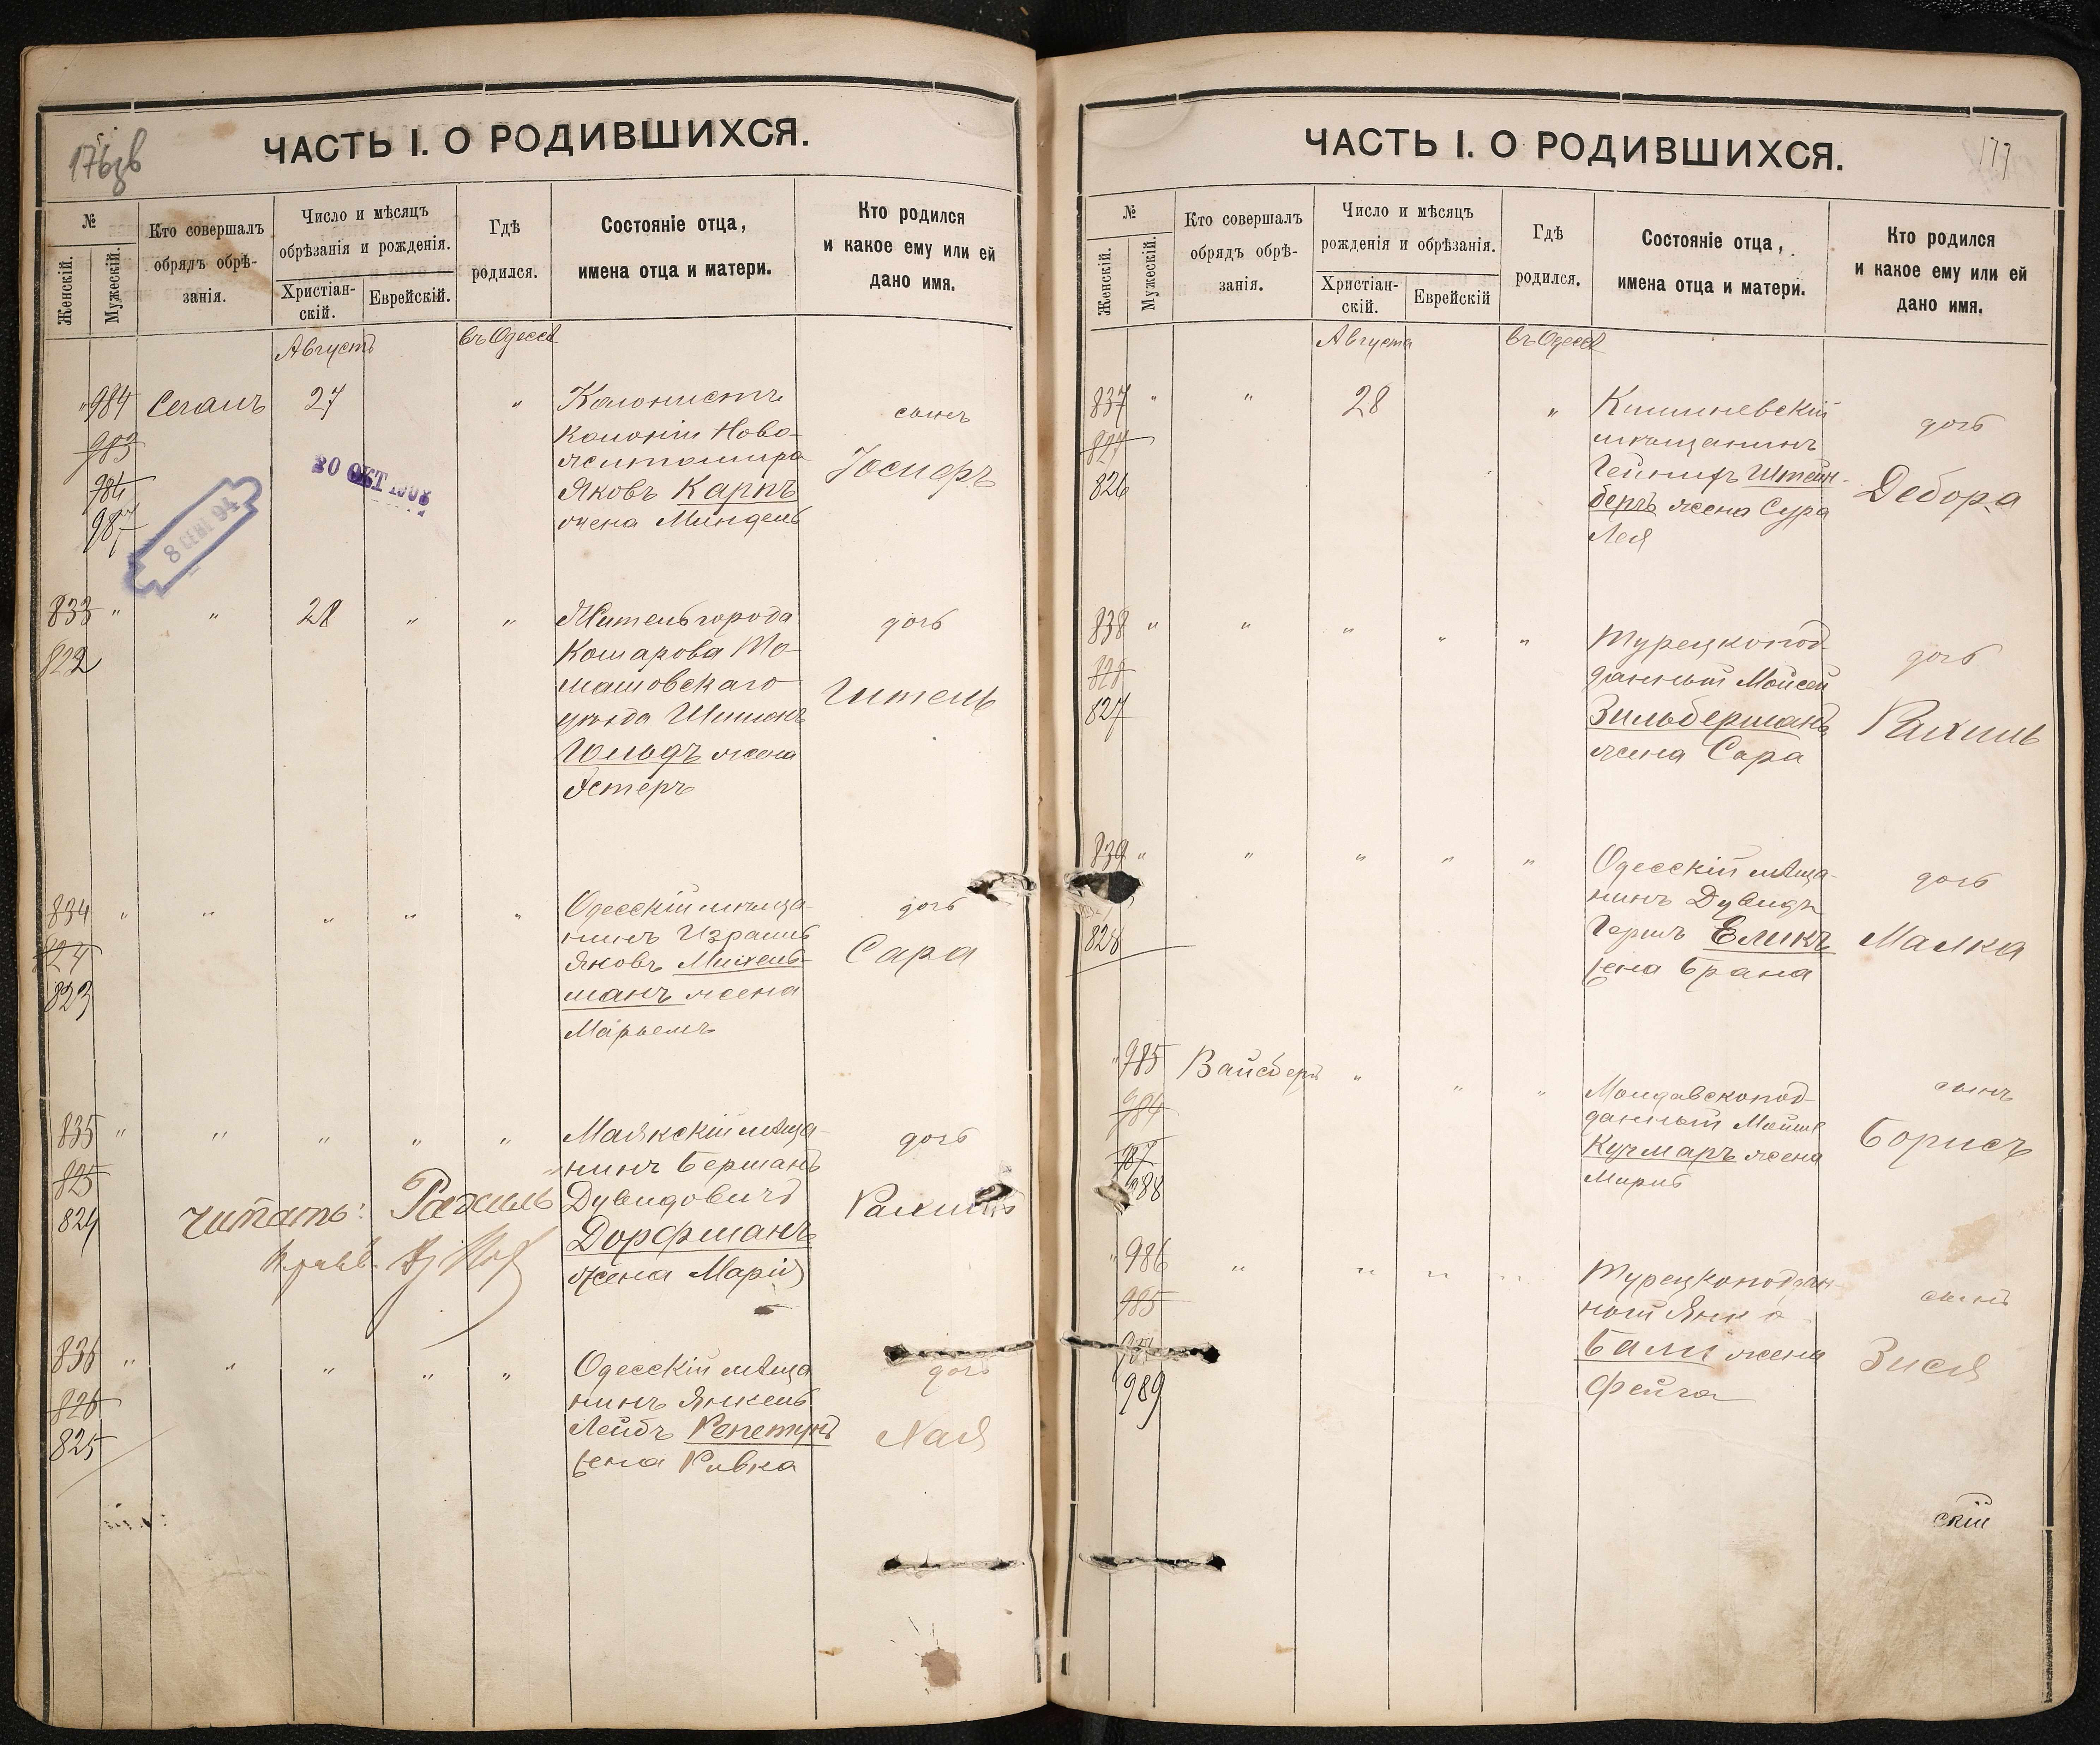 176 зв
ЧАСТЬ I. О РОДИВШИХСЯ.
№
Женскій.
Мужескій.
Кто совершалъ
обрядъ обрѣ-
занія.
Число и мѣсяцъ
обрѣзанія и рожденія.
Христіан-
скій.
Еврейскій.
Гдѣ
родился.
Состояніе отца,
имена отца и матери.
Кто родился
и какое ему или ей
дано имя.
Августъ
въ Одессѣ
" 984 Сегалъ 27 "
983
984
987
Колонистъ
Колоніи Ново-
житомира
Яковъ Карпъ
жена Миндель
сынъ
Іосифъ
20 ОКТ
8 СЕНТ 94
833 " " 28 " "
822
Житель города
Комарова То-
машовскаго
уѣзда Шимонъ
Гольдъ жена
Эстеръ
дочь
Гитель
834 " " " " "
824
823
Одесскій мѣща-
нинъ Израиль
Яковъ Михель-
манъ жена
Марьемъ
дочь
Сара
835 " " " " "
825
824
Маякскій мѣща-
нинъ Берманъ
Дувидовичъ
Дорфманъ
жена Марія
дочь
Рахиль
читать: Рахиль
836 " " " " "
826
825
Одесскій мѣща
нинъ Янкель
Лейбъ Репетуръ
жена Ривка
дочь
Хая
177
ЧАСТЬ I. О РОДИВШИХСЯ.
№
Женскій.
Мужескій.
Кто совершалъ
обрядъ обрѣ-
занія.
Число и мѣсяцъ
рожденія и обрѣзанія.
Христіан-
скій.
Еврейскій
Гдѣ
родился.
Состояніе отца,
имена отца и матери.
Кто родился
и какое ему или ей
дано имя.
Августа
въ Одессѣ
837 " " 28 "
827
826
Кишиневскій
мѣщанинъ
Гейнихъ Штейн-
бергъ жена Сура
Лея
дочь
Дебора
838 " " " " "
828
827
Турецкопод-
данный Мойсей
Зильберманъ
жена Сара
дочь
Рахиль
839 " " " " "
828
Одесскій мѣща-
нинъ Дувидъ
Гершъ Еликъ
жена Брана
дочь
Малка
" 985 Вайсберъ " " "
984
987
988
Молдавскопод-
данный Мойше
Кучмаръ жена
Мирль
сынъ
Борисъ
" 986 " " " "
985
989
Турецкоподдан-
ный Янко
Бали жена
Фейга
сынъ
Зися
скій